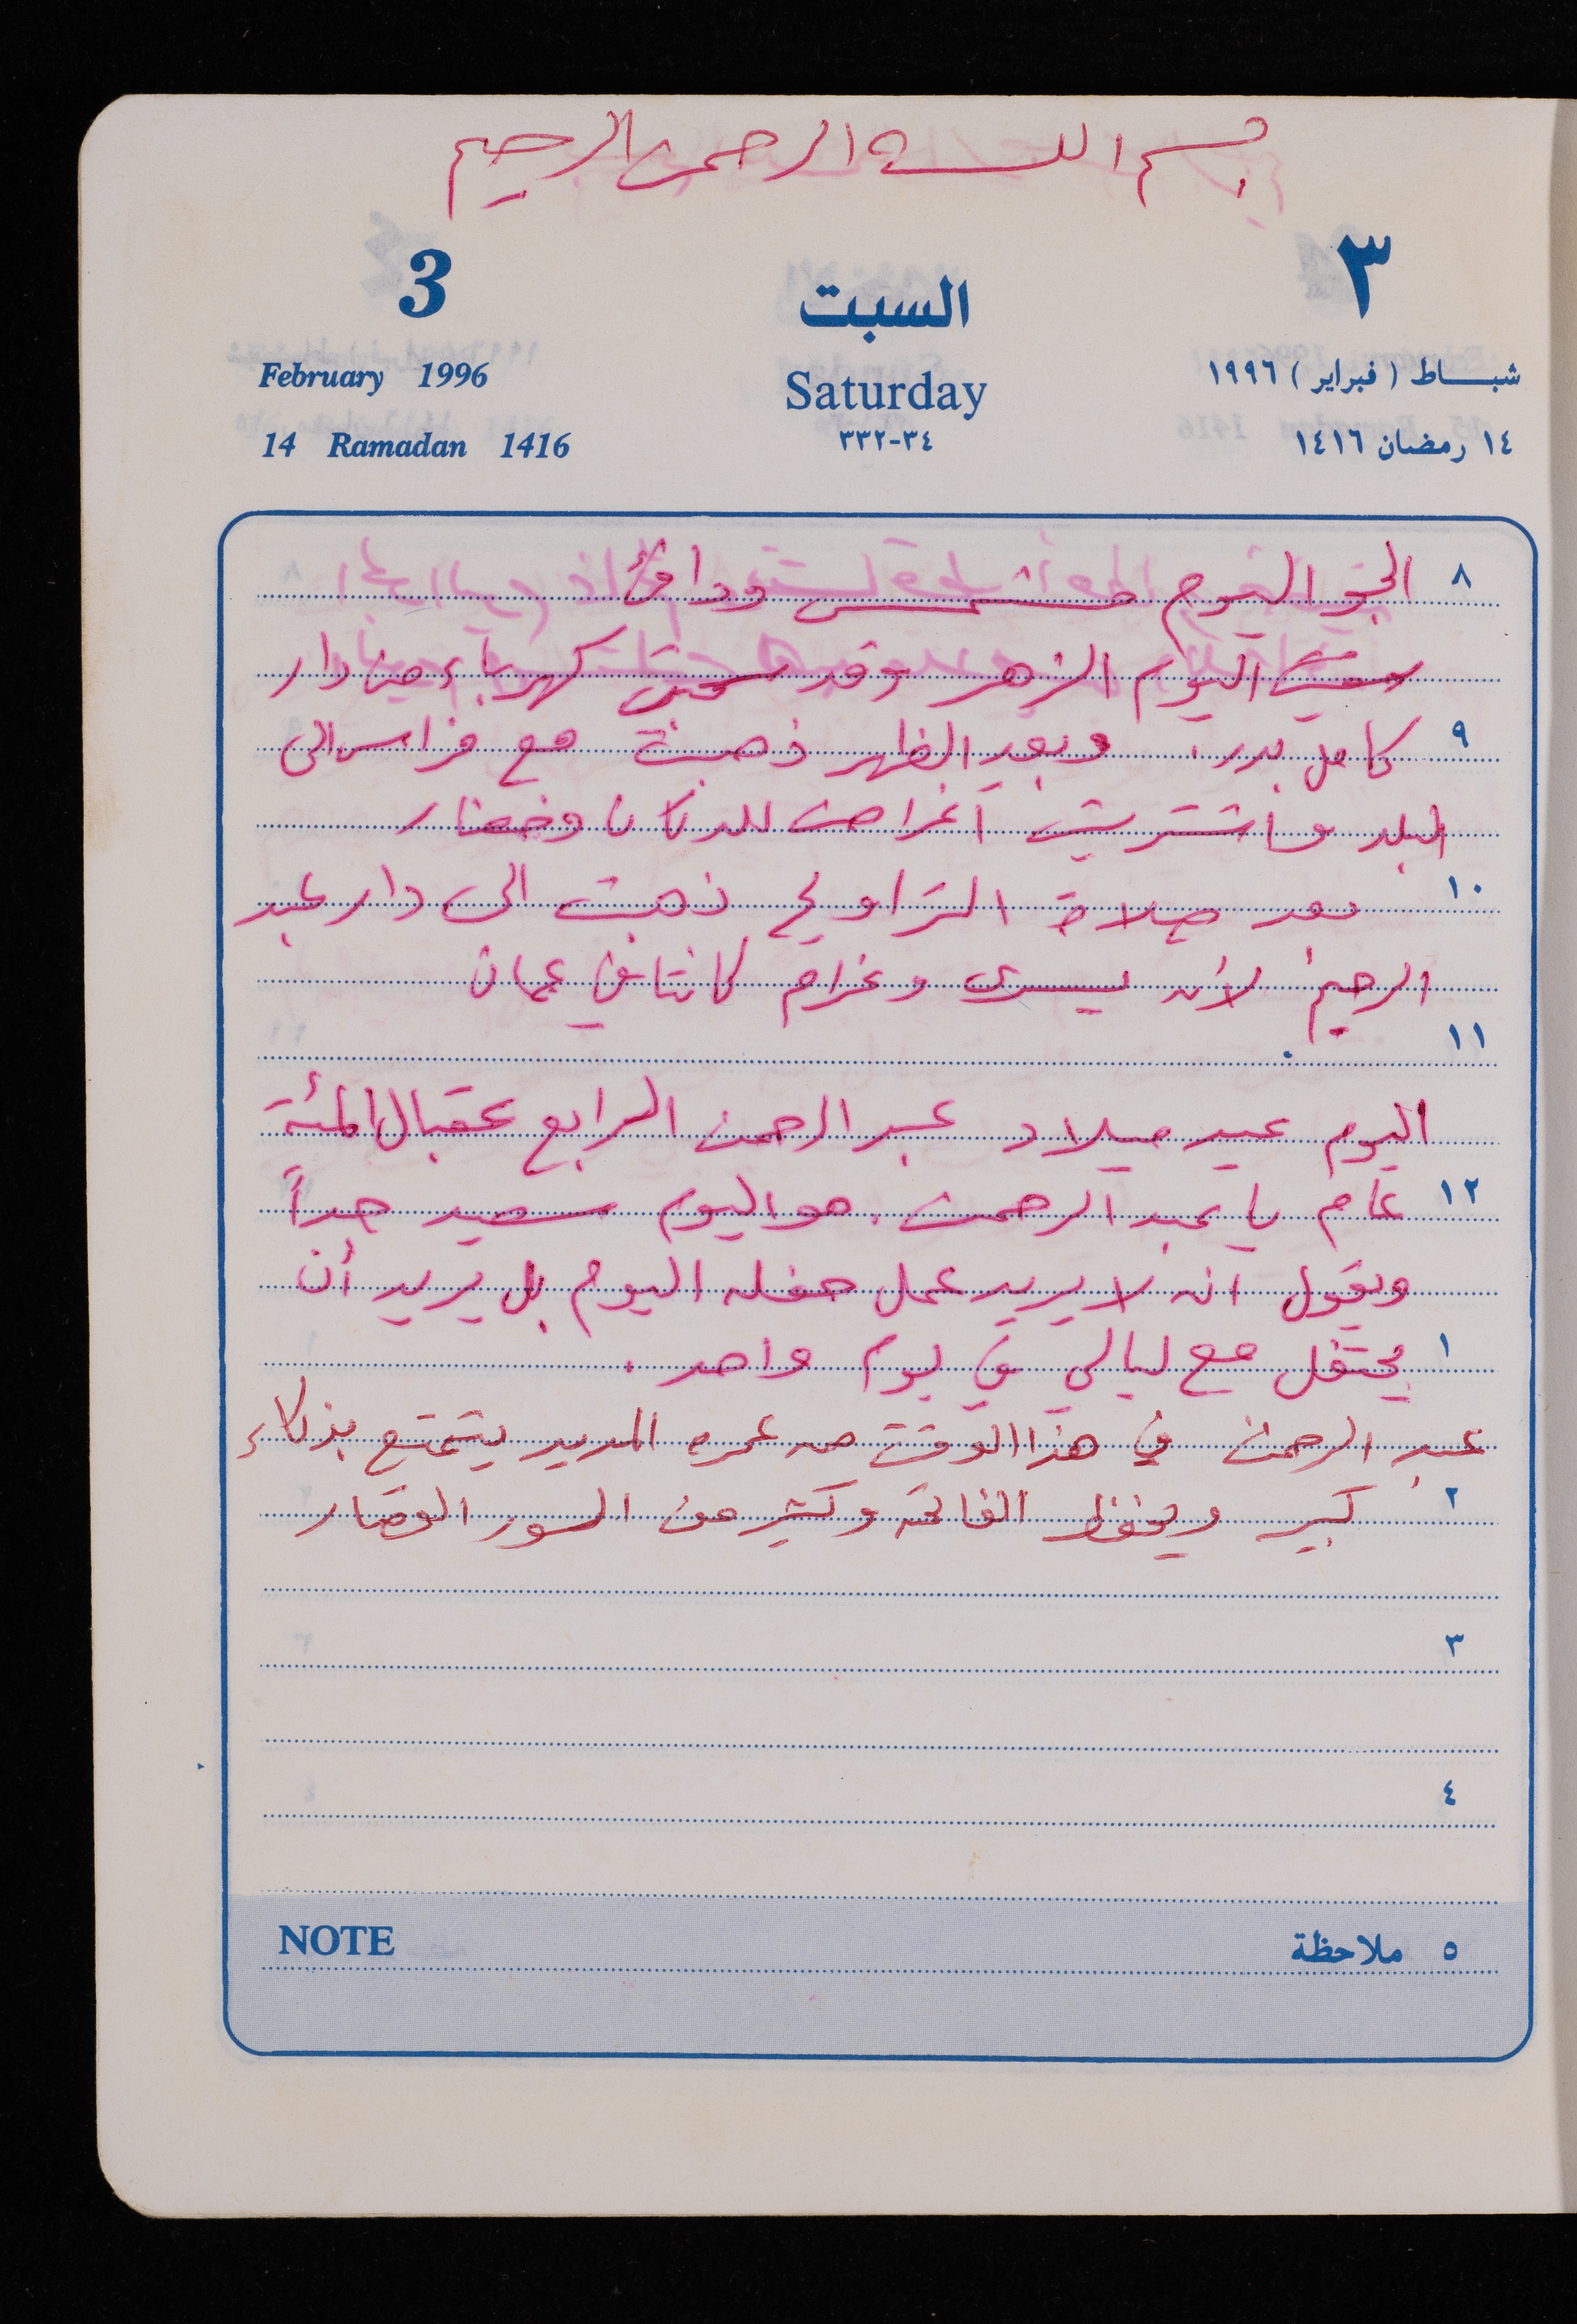 بسم الله الرحمن الرحيم
3 السبت ٣
February 1996 Saturday شباط (فبراير) ١٩٩٦
14 Ramadan 1416 ٣٤-٣٣٢ ١٤ رمضان ١٤١٦
٨ الجو اليوم مشمس ودافئ
سقيت اليوم الزهر وقد سحبت كهرباء من دار
٩ كامل بدر. وبعد الظهر ذهبت مع فراس الى
البلد واشتريت أغراض للدكان وخضار
١٠ بعد صلاة التراويح ذهبت الى دار عبد
الرحيم لأن يسرى وغرام كانتا في عمان
١١ .
اليوم عيد ميلاد عبد الرحمن الرابع عقبال المئة
١٢ عام يا عبد الرحمن. هو اليوم سعيد جداً
ويقول انه لا يريد عمل حفله اليوم بل يريد أن
١ يحتفل مع ليالي في يوم واحد.
عبد الرحمن في هذا الوقت من عمره المديد يتمتع بذكاء
٢ كبير ويحفظ الفاتحه وكثير من السور القصار
٣
٤
NOTE ٥ ملاحظة